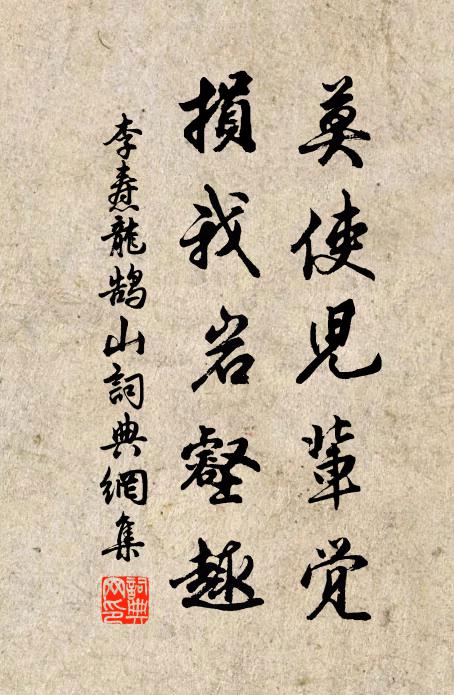 莫使児輩覚
損我岩壑趣
李燾龍鵠山詞典網集
詞典网印